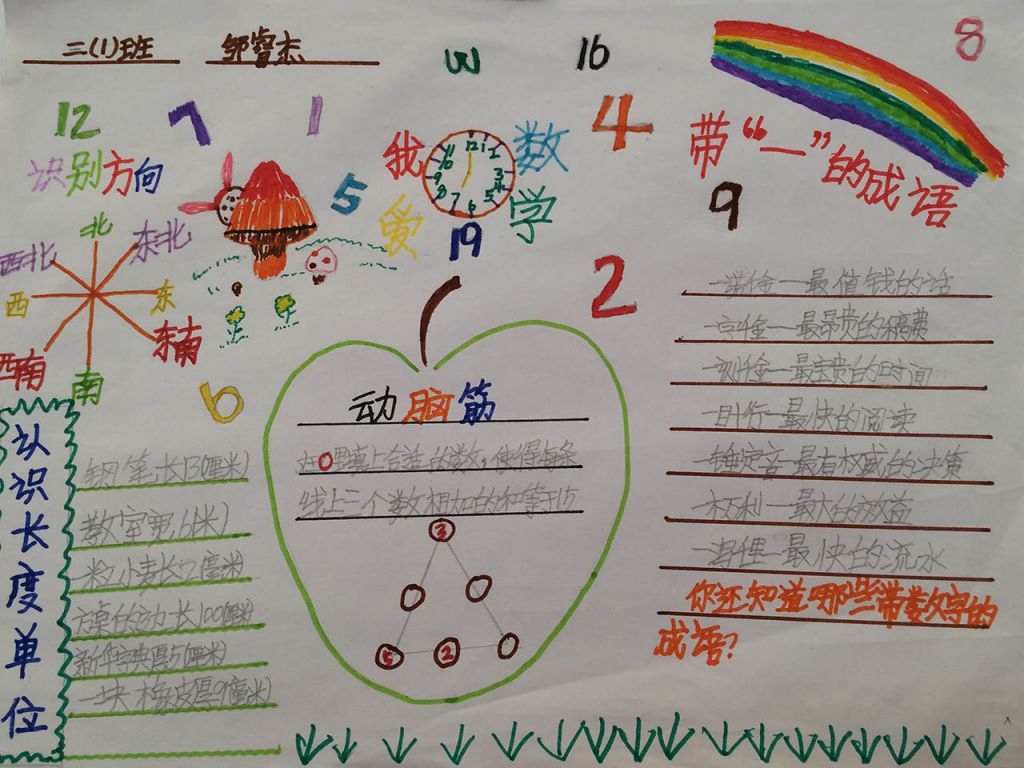 三(1)班 邹睿杰
3
16
8
12
7
1
4
识别方向
北
东北
东
东南
南
西南
西
西北
5
6
我爱数学
12 1 2 3 4 5 6 7 8 9 10 11
19
9
2
带“一”的成语
一诺千金—最值钱的话
一字千金—最昂贵的稿费
一刻千金—最宝贵的时间
一目十行—最快的阅读
一锤定音—最有权威的决策
一本万利—最大的效益
一泻千里—最快的流水
你还知道哪些带数字的
成语?
动脑筋
在○里填上合适的数,使得每条
线上三个数相加的和等于15
3
5
2
认识长度单位
钢笔长130(厘米)
教室宽6(米)
一粒小麦长7(毫米)
方桌的边长100(厘米)
新华字典厚5(厘米)
一块橡皮厚9(毫米)